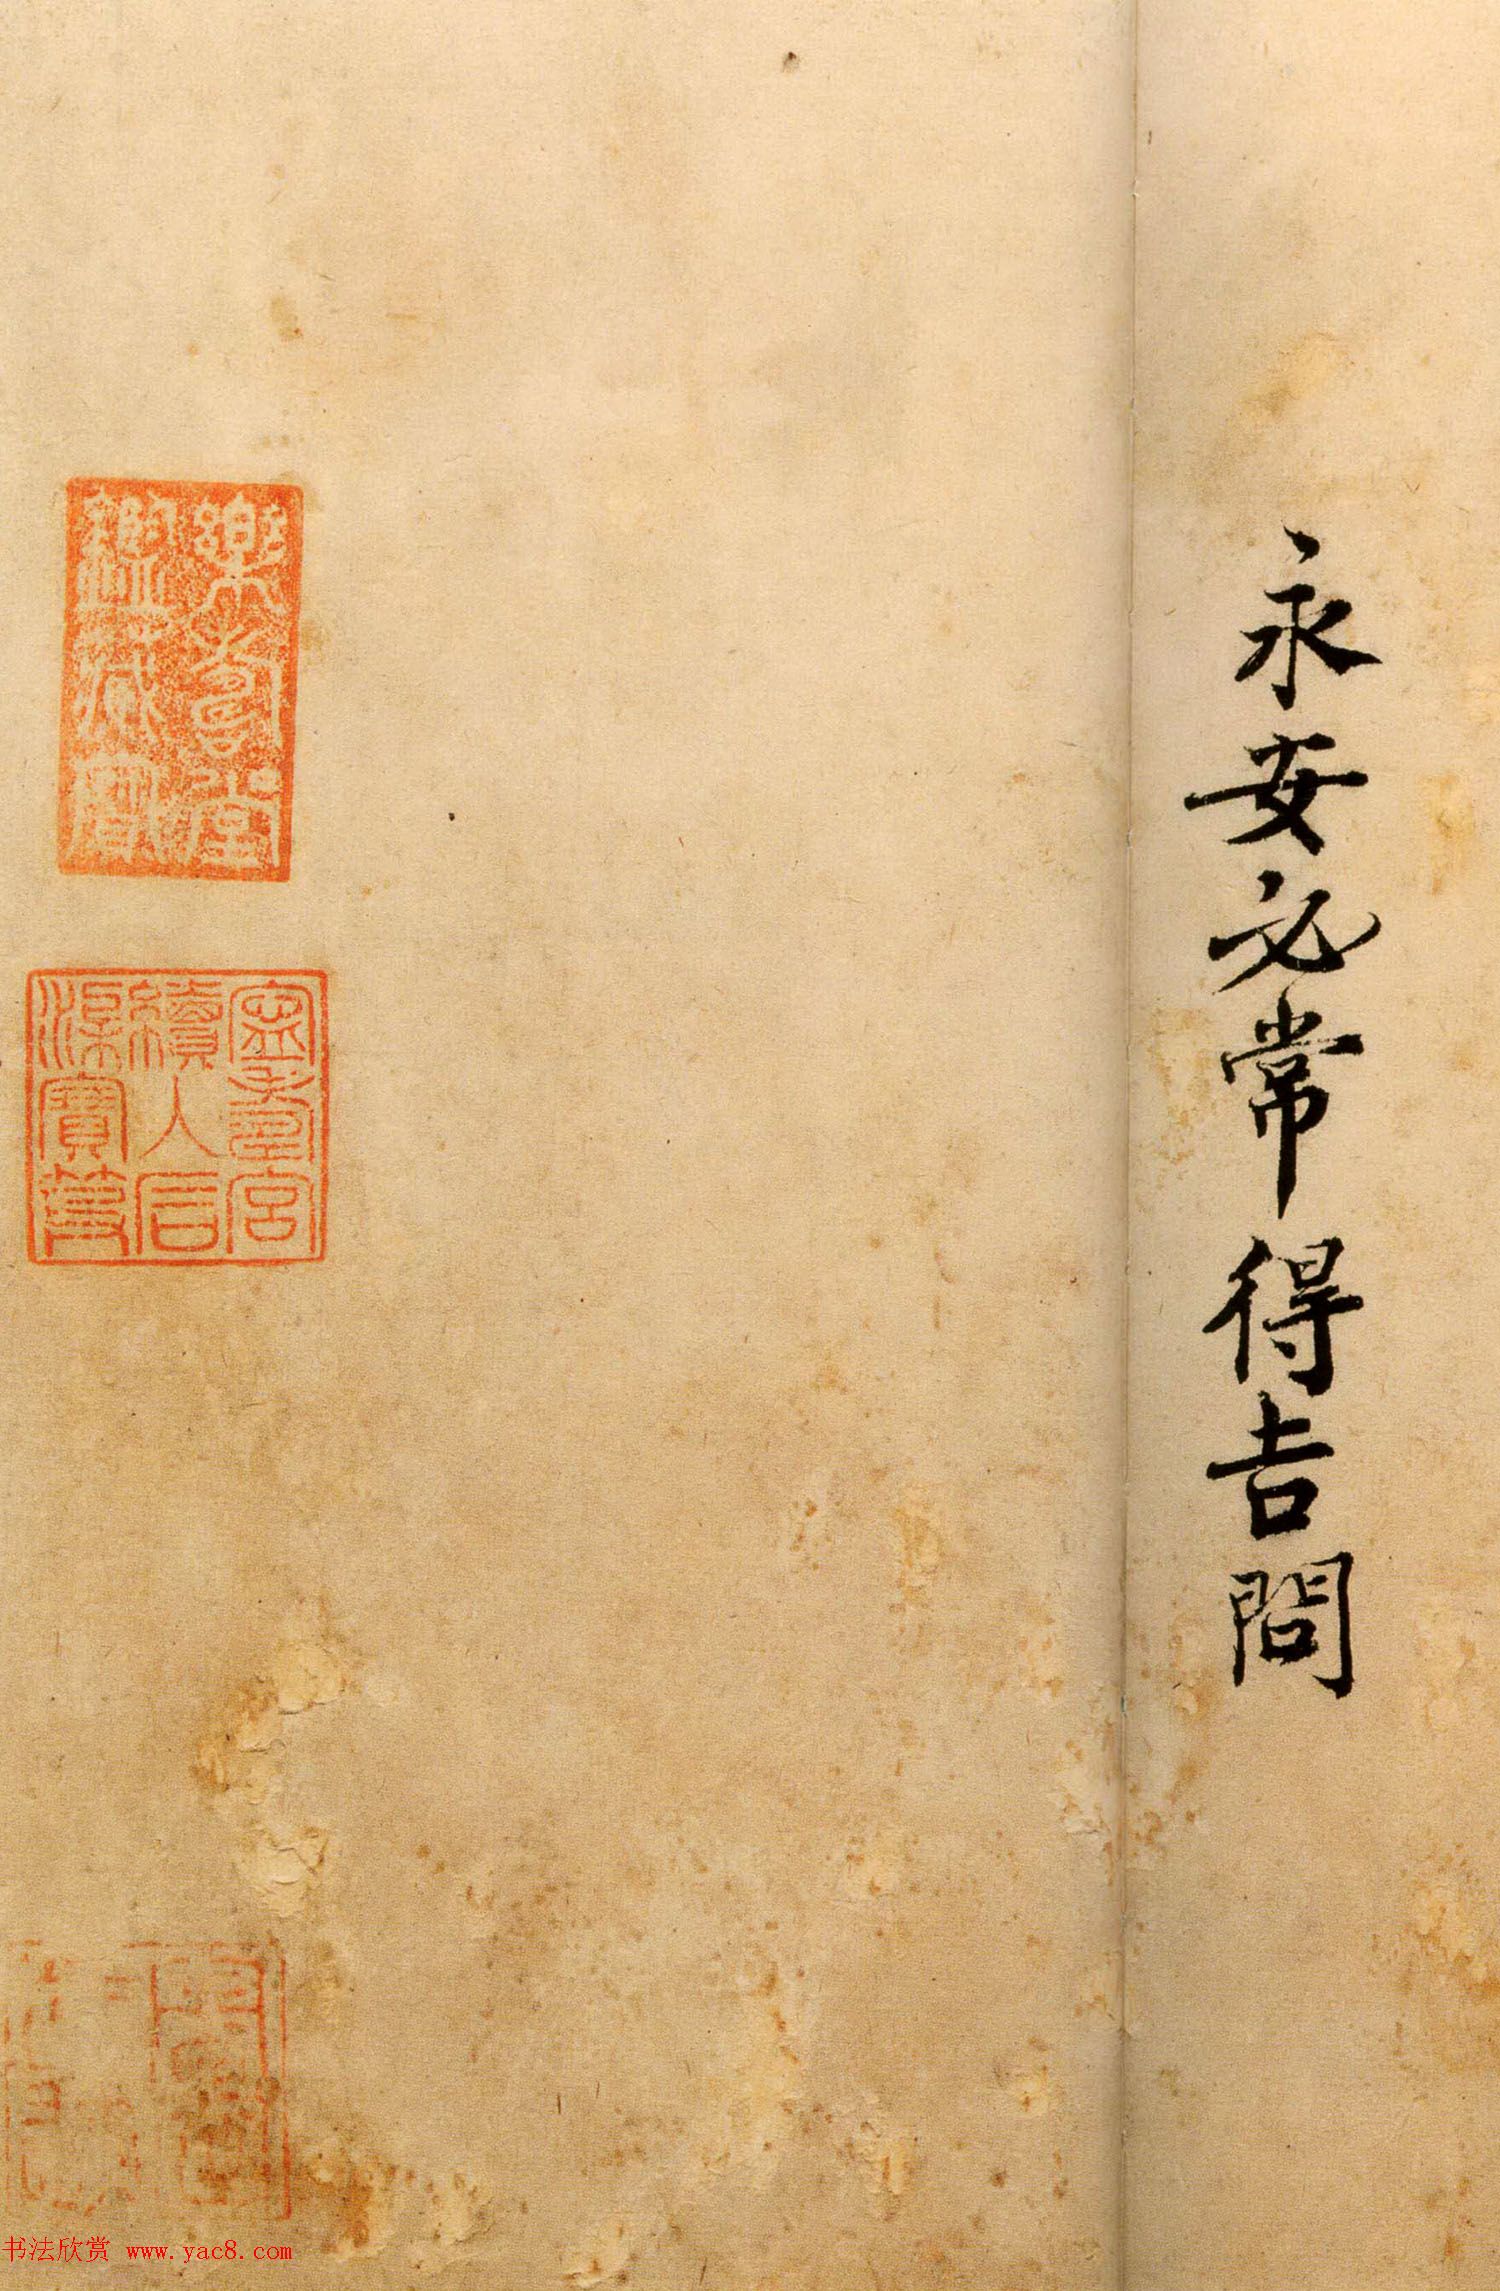 永安必常得吉問
樂壽堂鑑藏寶
寧壽宮續入石渠寶笈
书法欣赏 www.yac8.com